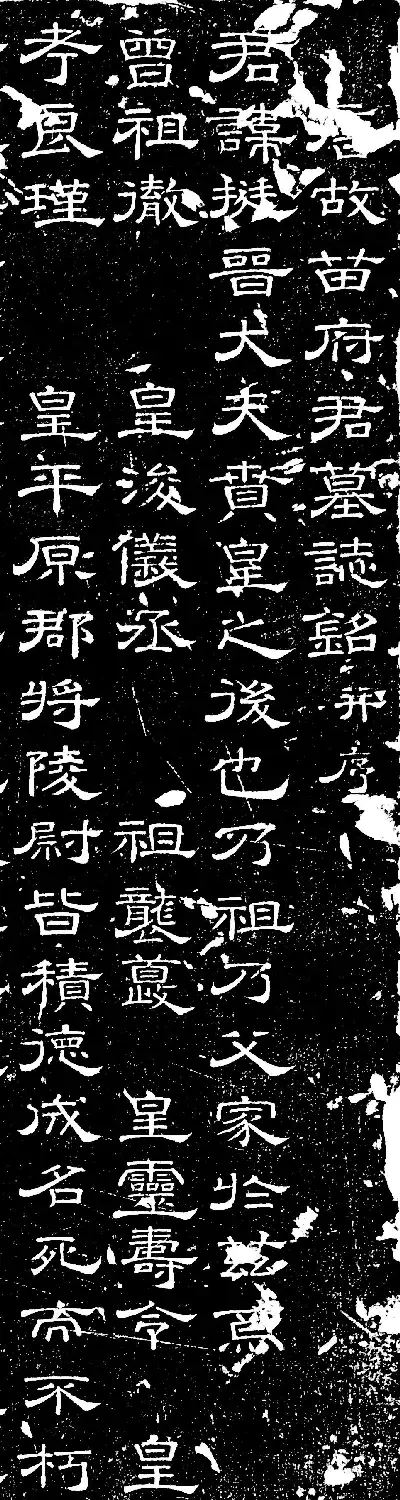 唐故苗府君墓誌銘并序
君諱挺晉大夫賁皇之後也乃祖乃父家於茲焉
曾祖徹皇浚儀丞祖襲夔皇靈壽令皇
考良瑾皇平原郡將陵尉皆積德成名死而不朽